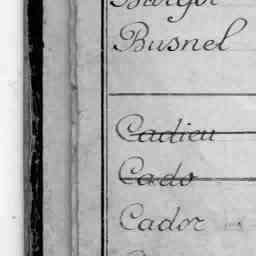 Busnel
Cadieu
Cado
Cador